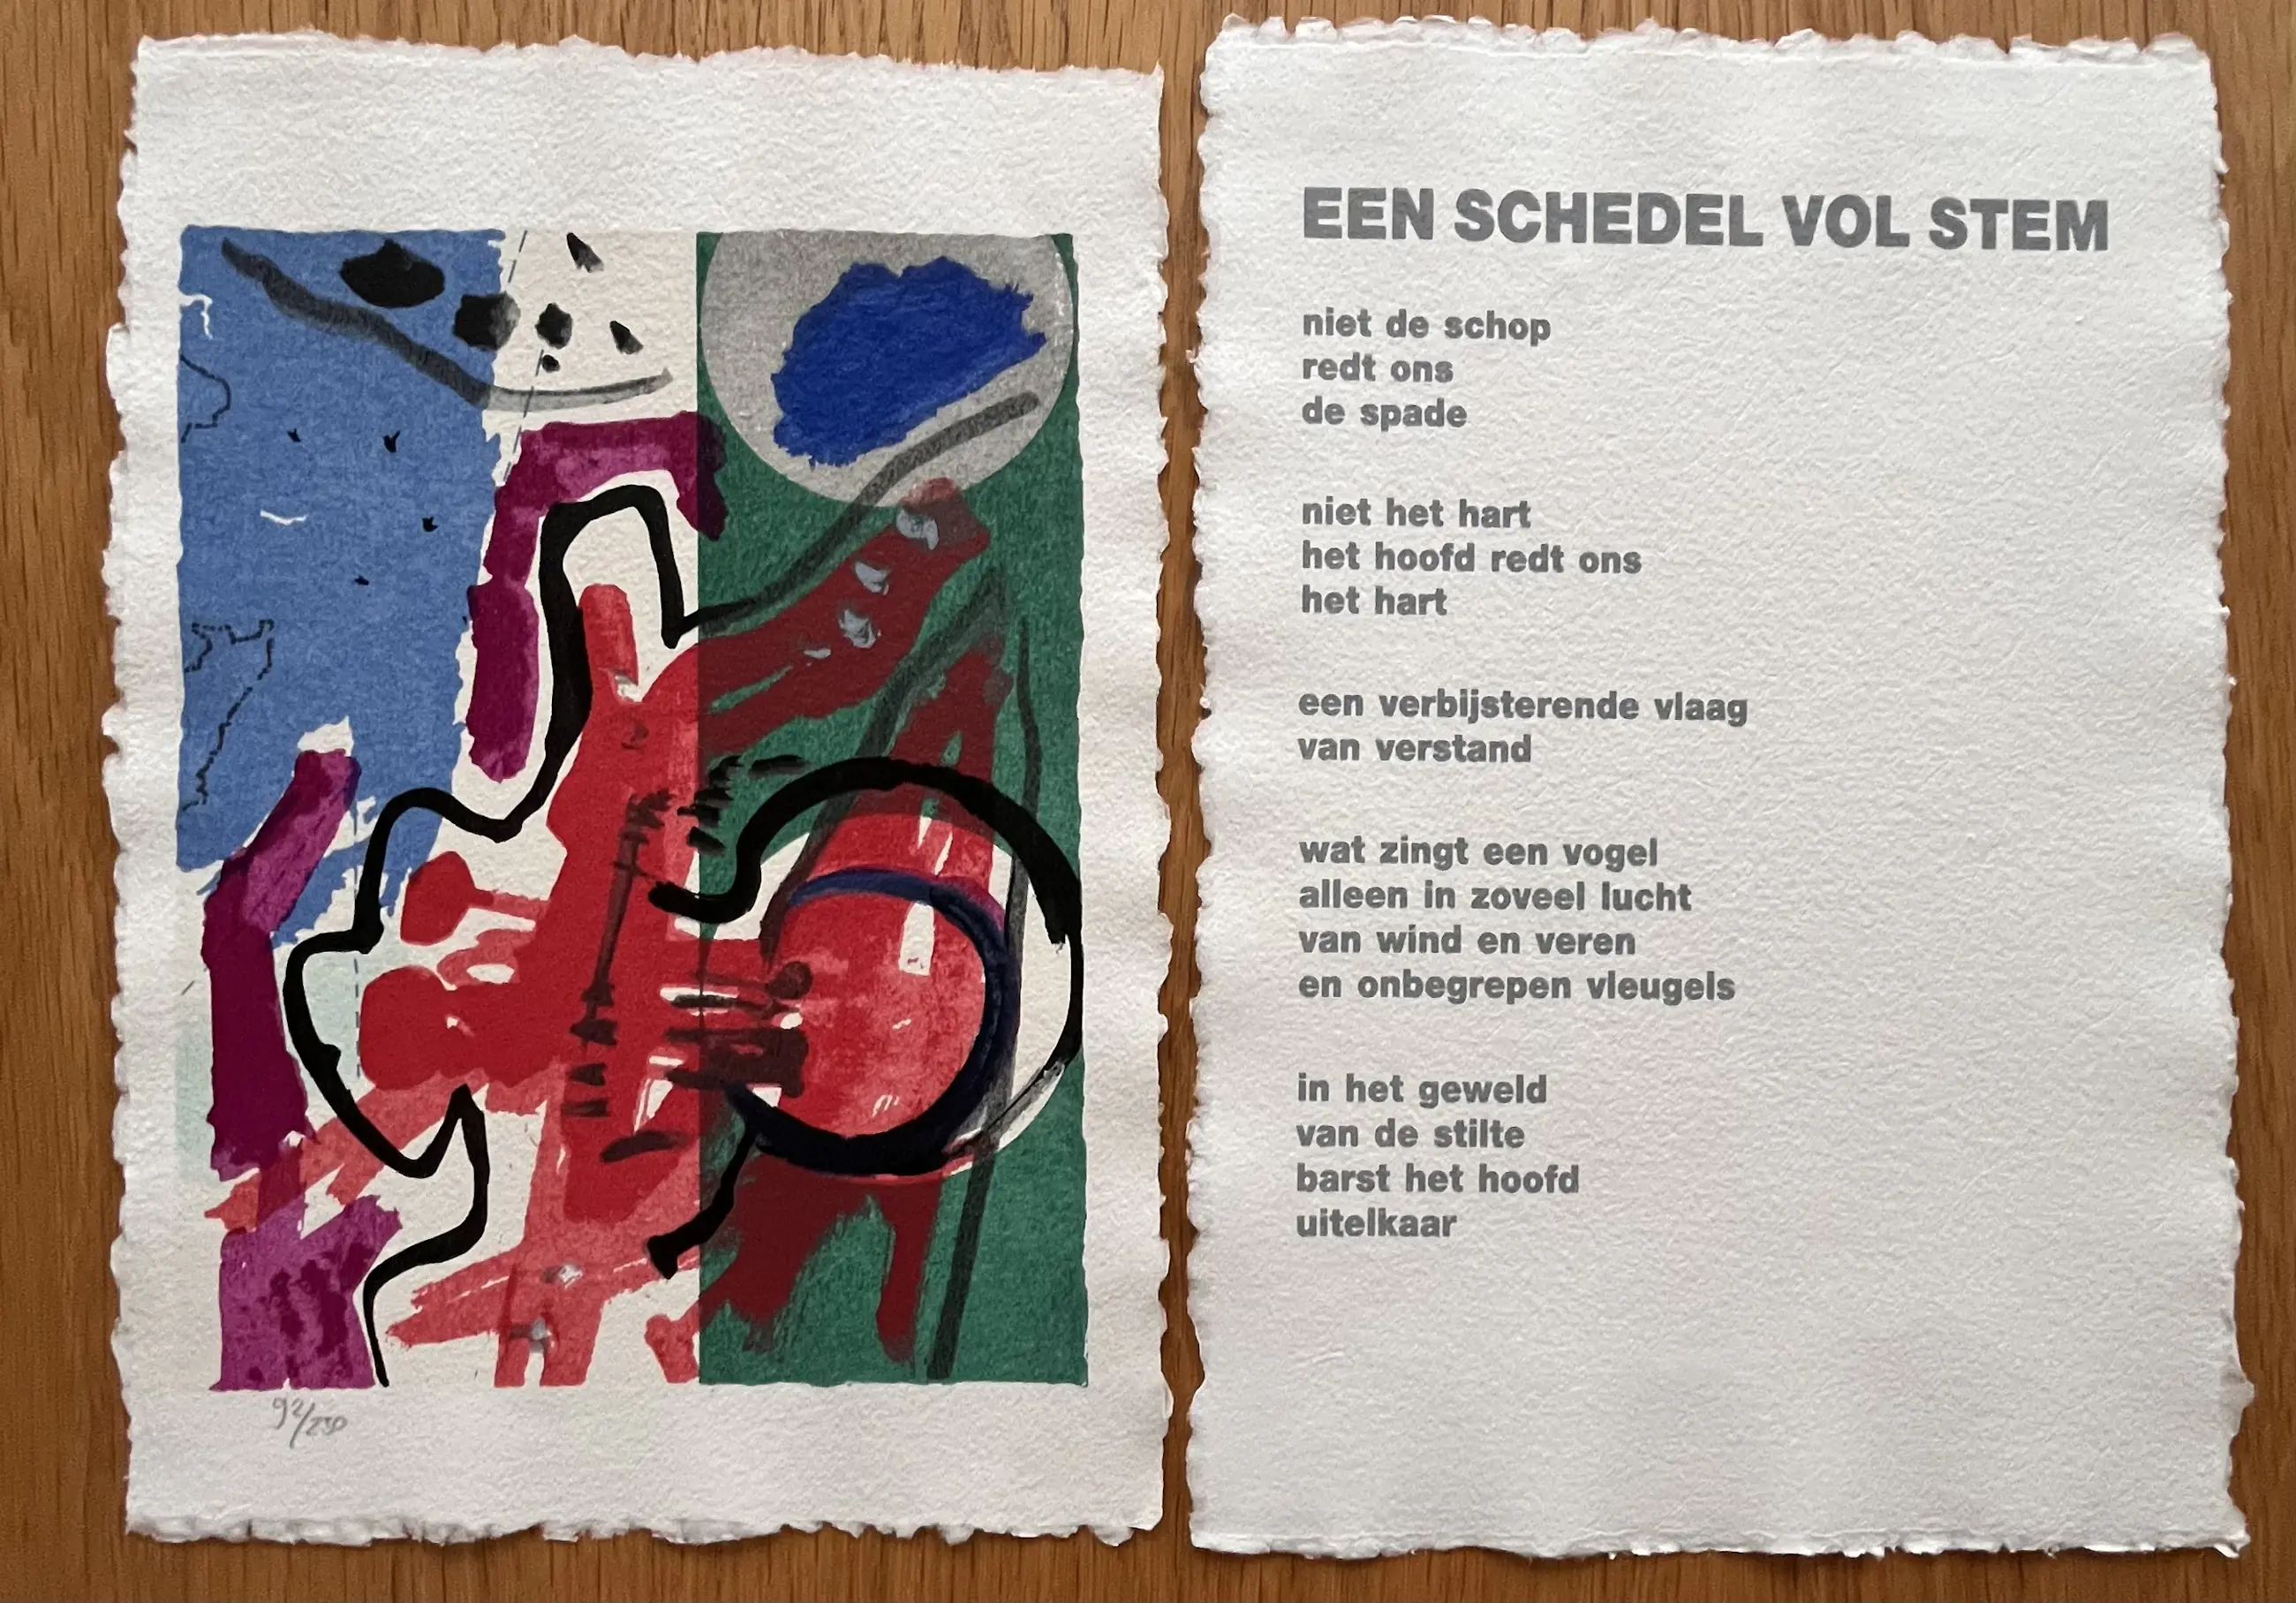 92/250
EEN SCHEDEL VOL STEM
niet de schop
redt ons
de spade
niet het hart
het hoofd redt ons
het hart
een verbijsterende vlaag
van verstand
wat zingt een vogel
alleen in zoveel lucht
van wind en veren
en onbegrepen vleugels
in het geweld
van de stilte
barst het hoofd
uitelkaar